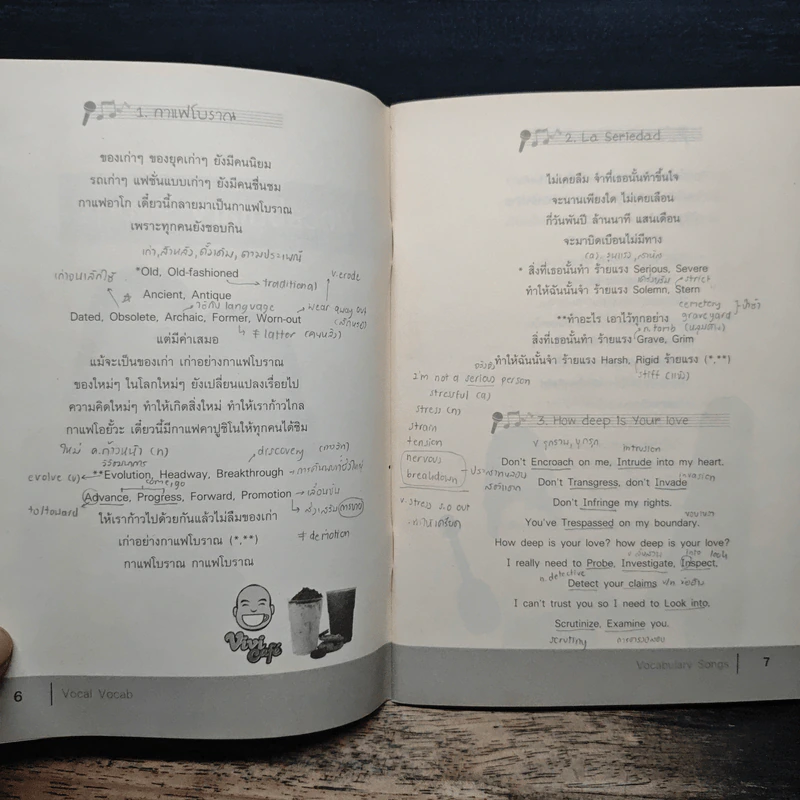 1. กาแฟโบราณ
ของเก่าๆ ของยุคเก่าๆ ยังมีคนนิยม
รถเก่าๆ แฟชั่นแบบเก่าๆ ยังมีคนชื่นชม
กาแฟอาโก เดี๋ยวนี้กลายมาเป็นกาแฟโบราณ
เพราะทุกคนยังชอบกิน
เก่า, ล้าหลัง, ดั้งเดิม, ตามประเพณี
*Old, Old-fashioned
traditional
v. erode
Ancient, Antique
language
wear away out
Dated, Obsolete, Archaic, Former, Worn-out
≠ latter
แต่มีค่าเสมอ
แม้จะเป็นของเก่า เก่าอย่างกาแฟโบราณ
ของใหม่ๆ ในโลกใหม่ๆ ยังเปลี่ยนแปลงเรื่อยไป
ความคิดใหม่ๆ ทำให้เกิดสิ่งใหม่ ทำให้เราก้าวไกล
กาแฟโอยั้วะ เดี๋ยวนี้มีกาแฟคาปูชิโนให้ทุกคนได้ชิม
ใหม่ ค.ก้าวหน้า (n)
discovery
วิวัฒนาการ
evolve (v)
**Evolution, Headway, Breakthrough
Advance, Progress, Forward, Promotion
เลื่อนขั้น
to/toward
ให้เราก้าวไปด้วยกันแล้วไม่ลืมของเก่า
เก่าอย่างกาแฟโบราณ (*,**)
≠ demotion
กาแฟโบราณ กาแฟโบราณ
Vivi Café
6 Vocal Vocab
2. La Seriedad
ไม่เคยลืม จำที่เธอนั้นทำขึ้นใจ
จะนานเพียงใด ไม่เคยเลือน
กี่วันพันปี ล้านนาที แสนเดือน
จะมาบิดเบือนไม่มีทาง
* สิ่งที่เธอนั้นทำ ร้ายแรง Serious, Severe
strict
ทำให้ฉันนั้นจำ ร้ายแรง Solemn, Stern
cemetery
**ทำอะไร เอาไว้ทุกอย่าง
graveyard
n. tomb
สิ่งที่เธอนั้นทำ ร้ายแรง Grave, Grim
ทำให้ฉันนั้นจำ ร้ายแรง Harsh, Rigid ร้ายแรง (*,**)
stiff
I'm not a serious person
stressful (a)
stress (n)
strain
tension
nervous
breakdown
v. stress s.o out
3. How deep is Your love
intrusion
Don't Encroach on me, Intrude into my heart.
invasion
Don't Transgress, don't Invade
Don't Infringe my rights.
You've Trespassed on my boundary.
How deep is your love? how deep is your love?
into look
I really need to Probe, Investigate, Inspect,
n. detective
Detect your claims
I can't trust you so I need to Look into,
Scrutinize, Examine you.
scrutiny
Vocabulary Songs 7